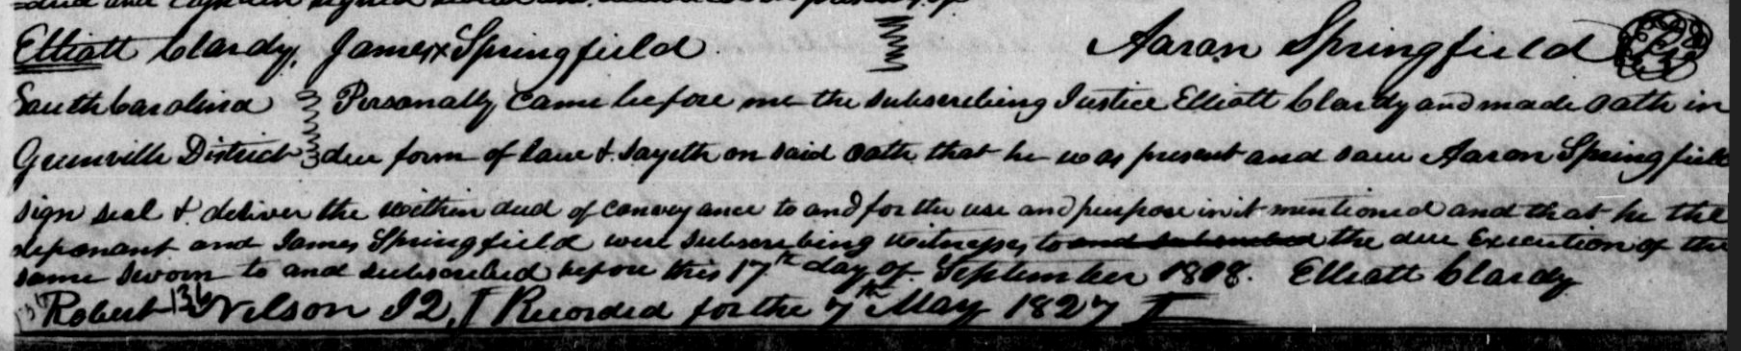 Elliott Clardy, James x Springfield Aaron Springfield
South Carolina Personally came before me the subscribing Justice Elliott Clardy and made oath in
Greenville District due form of law & sayeth on said oath that he was present and saw Aaron Springfield
sign seal & deliver the within deed of conveyance to and for the use and purpose in it mentioned and that he the
deponant and James Springfield were subscribing witnesses to and subscribed the due Execution of the
same sworn to and subscribed before this 17th day of September 1808. Elliott Clardy
Robert Wilson J2, Recorded for the 7th May 1827